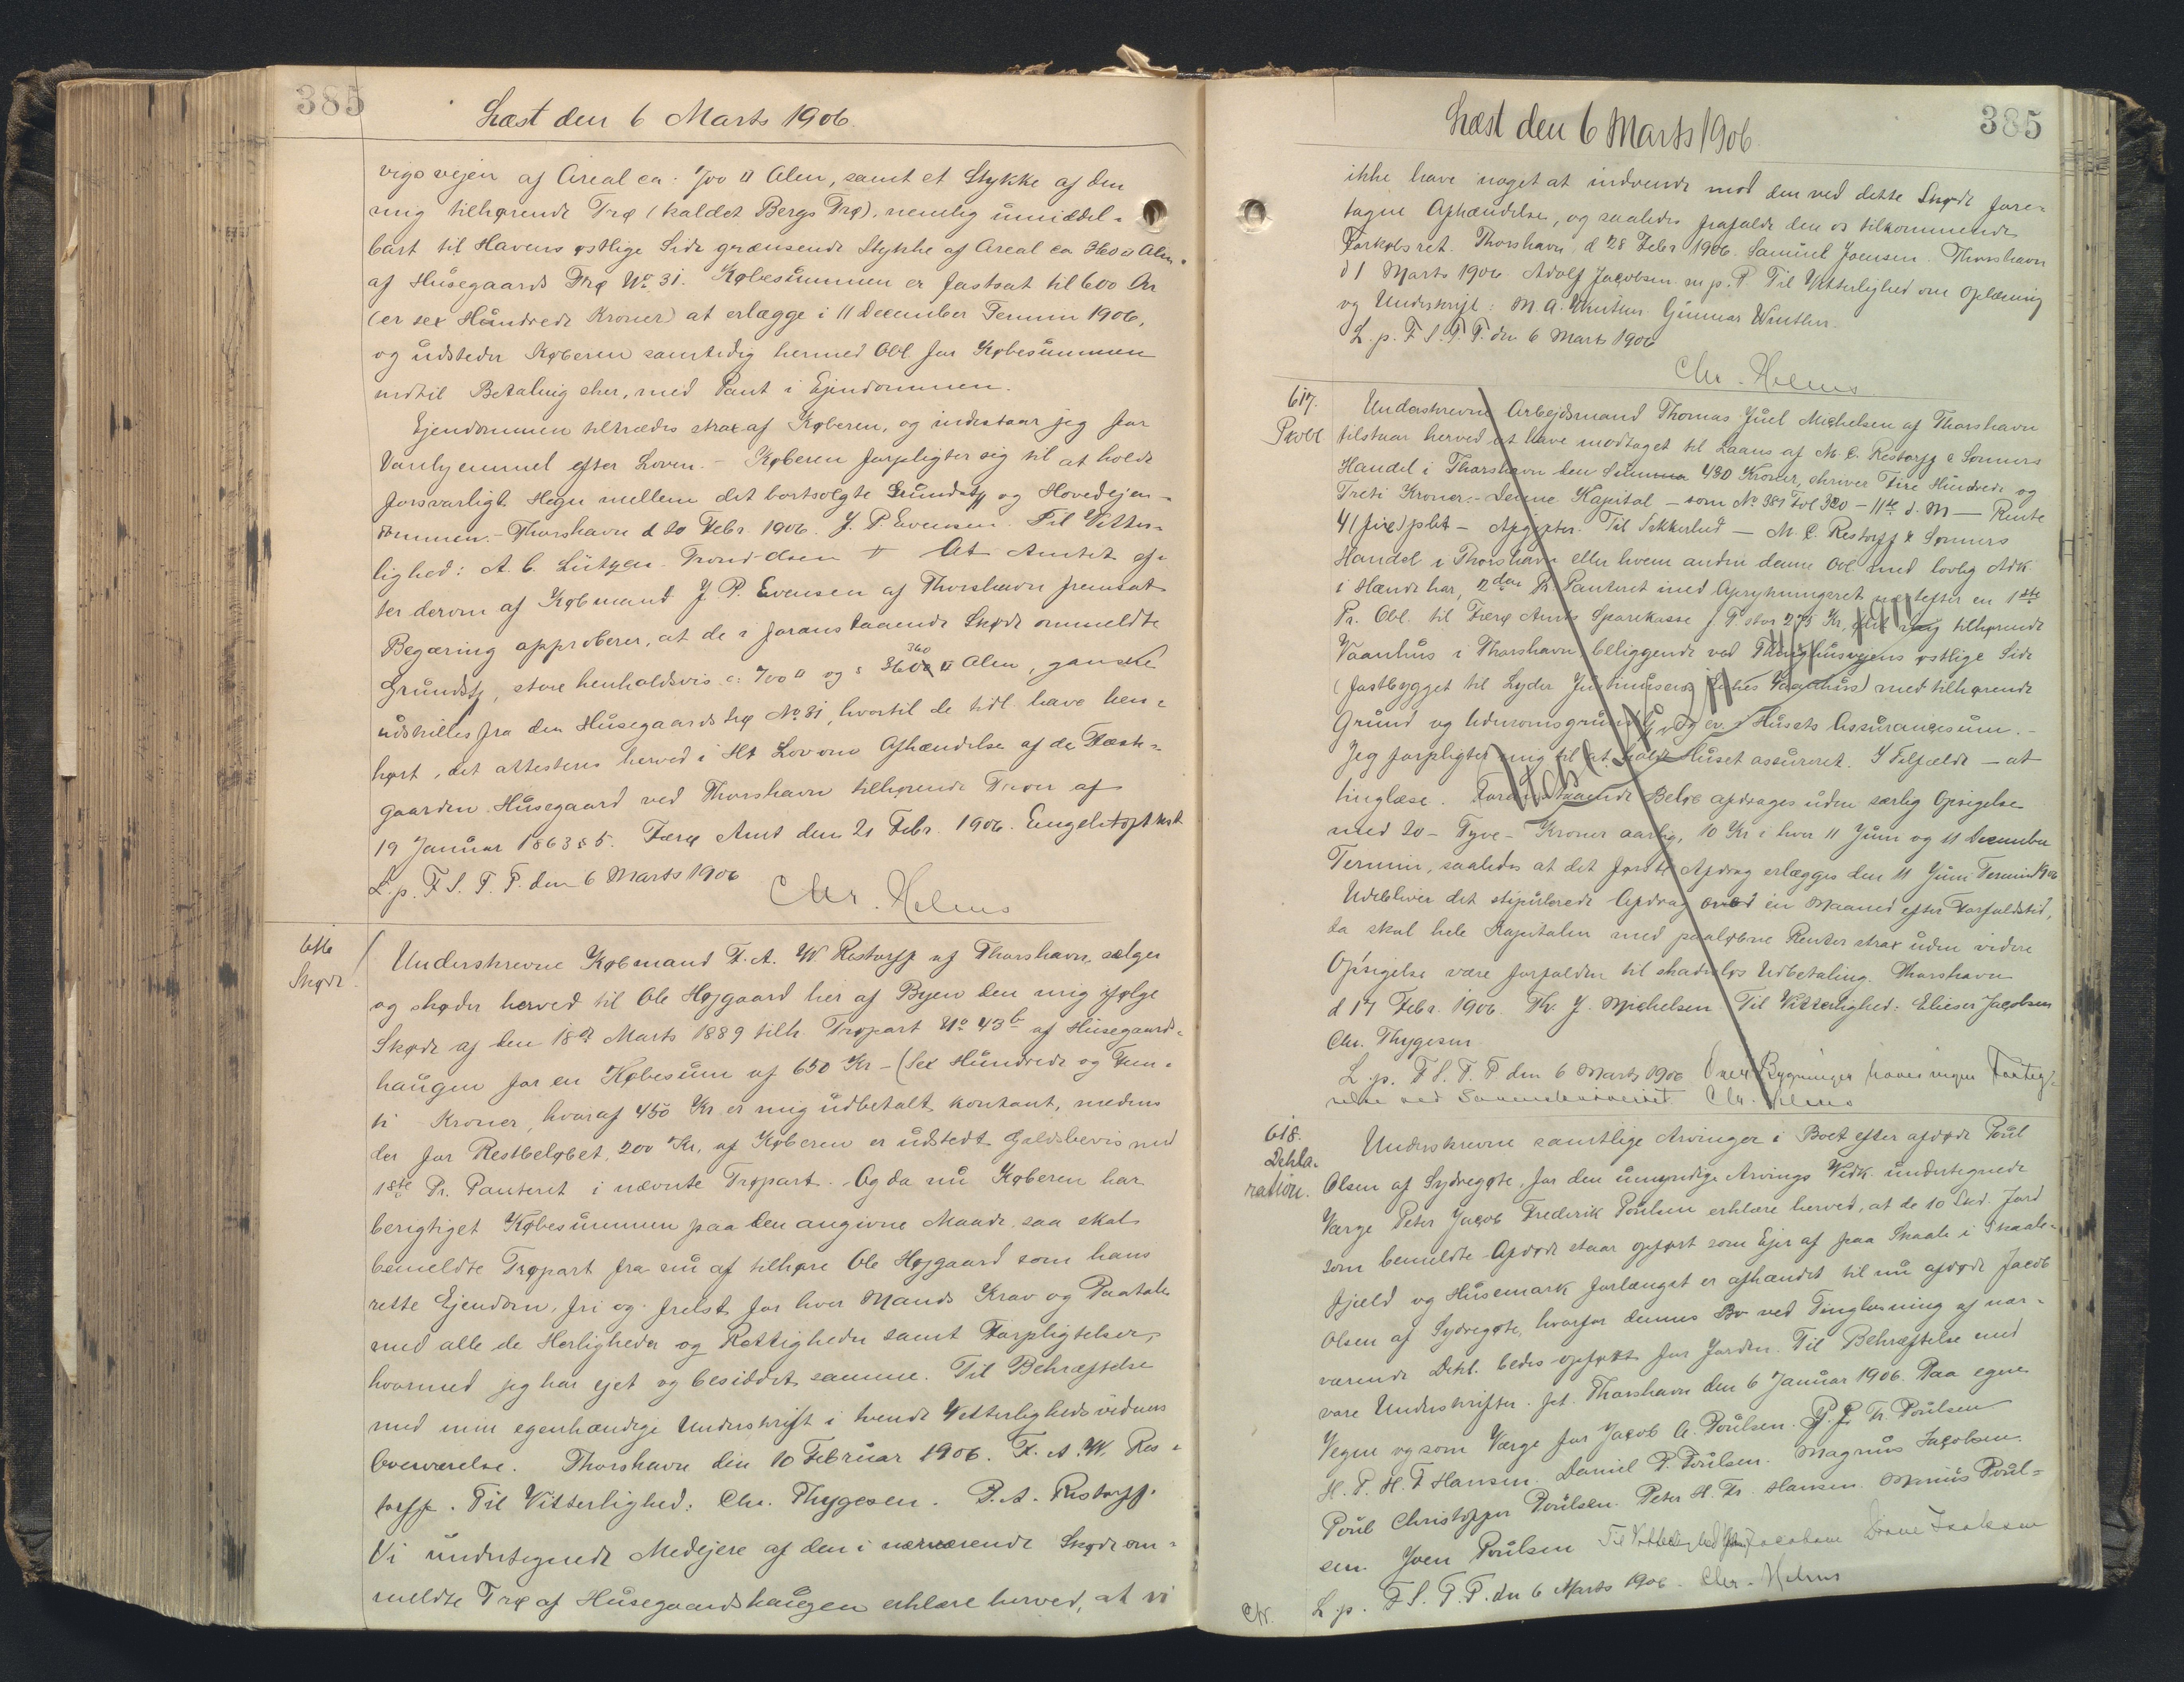 385
Læst den 6 Marts 1906
vigsvejen af Areal ca: 700 □ Alen, samt et Stykke af den
mig tilhørende Trø (kaldet Bergs Trø), nemlig umiddel-
bart til Havens østlige Side grænsende Stykke af Areal ca 360 □ Alen
af Húsegaards Trø No 31. Købesummen er fastsat til 600 Kr
(er sex Hundrede Kroner) at erlægge i 11 December Termin 1906,
og udsteder Køberen samtidig hermed Obl. for Købesummen
indtil Betaling sker, med Pant i Ejendommen.
Ejendommen tiltrædes strax af Køberen, og indestaar jeg for
Vanhjemmel efter Loven. - Køberen forpligter sig til at holde
forsvarligt Hegn mellem det bortsolgte Grundst. og Hovedejen-
dommen. - Thorshavn d 20 Febr. 1906. J. P. Evensen. Til Vitter-
lighed: A. C. Lützen. Trond Olsen # At Amtet ef-
ter derom af Købmand J. P. Evensen af Thorshavn fremsat
Begæring approberer, at de i foranstaaende Skøde ommeldte
360
Grundst, store henholdsvis c: 700 □ og c 360 □ Alen, ganske
udskilles fra den Húsegaards trø No 31, hvortil de tidl. have hen-
hørt, det attesteres herved i Ht Lov om Afhændelse af de Fæste-
gaarden Húsegaard ved Thorshavn tilhørende Trøer af
19 Januar 1863 § 5. Færø Amt den 21 Febr. 1906. Engelstoft kst
L. p. F. S. T. P. den 6 Marts 1906
Chr. Helms
616
Skøde
Underskrevne Købmand F. A. W. Restorff af Thorshavn, sælger
og skøder herved til Ole Højgaard her af Byen den mig ifølge
Skøde af den 18de Marts 1889 tilh. Trøpart No 43b af Húsegaards-
haugen for en Købesum af 650 Kr - (Sex Hundrede og Fem-
ti Kroner, hvoraf 450 Kr er mig udbetalt kontant, medens
der for Restbeløbet, 200 Kr, af Køberen er udstedt Gældsbevis med
1ste Pr. Panteret i nævnte Trøpart. - Og da nu Køberen har
berigtiget Købesummen paa den angivne Maade, saa skal
bemeldte Trøpart fra nu af tilhøre Ole Højgaard som hans
rette Ejendom, fri og frelst for hver Mands Krav og Paatale
med alle de Herligheder og Rettigheder samt Forpligtelser,
hvormed jeg har ejet og besiddet samme. Til Bekræftelse
med min egenhændige Underskrift i tvende Vitterlighedsvidners
Overværelse. Thorshavn den 10 Februar 1906. F. A. W. Res-
torff. Til Vitterlighed: Chr. Thygesen. P. A. Restorff.
Vi undertegnede Medejere af den i nærværende Skøde om-
meldte Trø af Húsegaardshaugen erklære herved, at vi
385
Læst den 6 Marts 1906
ikke have noget at indvende mod den ved dette Skøde fore-
tagne Afhændelse, og saaledes frafalde den os tilkommende
Forkøbsret. Thorshavn d 28 Febr 1906. Samuel Joensen. Thorshavn
d 1 Marts 1906 Adolf Jacobsen m. p. P. Til Vitterlighed om Oplæsning
og Underskrift: M. A. Winther. Gunnar Winther.
L. p. F. S. T. P. den 6 Marts 1906
Chr. Helms
617.
Underskrevne Arbejdsmand Thomas Juel Michelsen af Thorshavn
tilstaar herved at have modtaget til Laans af M. C. Restorff & Sønners
Handel i Thorshavn den Summa 430 Kroner, skriver Fire Hundrede og
Treti Kroner. - Denne Kapital - som No 381 Fol 320 - 11te d. M - Rente
4 (fire) pCt - Afgifter. Til Sikkerhed - M. C. Restorff & Sønners
Handel i Thorshavn eller hvem anden denne Obl med lovlig Adk.
i Hænde har, 2den Pr. Panteret med Oprykningsret næstefter en 1ste
Pr. Obl. til Færø Amts Sparekasse f. P. stor 275 Kr, i det mig tilhørende
Vaanhus i Thorshavn beliggende ved Thinghusvejens østlige Side
(fastbygget til Lyder Vaanhuss) med tilhørende
Grund og Udenomsgrund, og ev. Húsets Assurancesum. -
Jeg forpligter mig til at holde Húset assureret. I Tilfælde - at
tinglæse. Foranstaaende Beløb afdrages uden særlig Opsigelse
med 20 - Tyve - Kroner aarlig, 10 Kr i hver 11 Juni og 11 December
Termin, saaledes at det første Afdrag erlægges den 11 Juni Termin 1906
Udebliver det stipulerede Afdrag over en Maaned efter Forfaldstid,
da skal hele Kapitalen med paaløbne Renter strax uden videre
Opsigelse være forfalden til skadesløs Udbetaling. Thorshavn
d 17 Febr. 1906. Th. J. Michelsen. Til Vitterlighed: Elieser Jacobsen
Chr. Thygesen
L. p. F. S. T. P den 6 Marts 1906 Over Bygninger haves ingen Forteg-
nelse ved Sorenskriveriet. Chr. Helms
618.
Dekla-
ration.
Underskrevne samtlige Arvinger i Boet efter afdøde Poul
Olsen af Sydregøte, for den umyndige Arvings Vedk. undertegnede
Værge Peter Jacob Frederik Poulsen erklære herved, at de 10 Skd. Jord
som bemeldte Afdøde staar opført som Ejer af paa Skaale i Skaale-
fjæld og Húsemark forlængst er afhændet til nu afdøde Jacob
Olsen af Sydregøte, hvorfor dennes Bo ved Tinglæsning af nær-
værende Dekl. bedes opført for Jorden. Til Bekræftelse med
vore Underskrifter. pt. Thorshavn den 6 Januar 1906. Paa egne
Vegne og som Værge for Jacob A. Poulsen. P. J. Fr. Poulsen
H. P. H. F Hansen. Daniel P. Poulsen. Magnus Jacobsen.
Poul Christoffer Poulsen. Peter H. Fr. Hansen. Marius Poul-
sen Joen Poulsen Til Vitterlighed Jacobsen Isaksen
L. p. F. S. T. P. den 6 Marts 1906. Chr. Helms
Cfr.